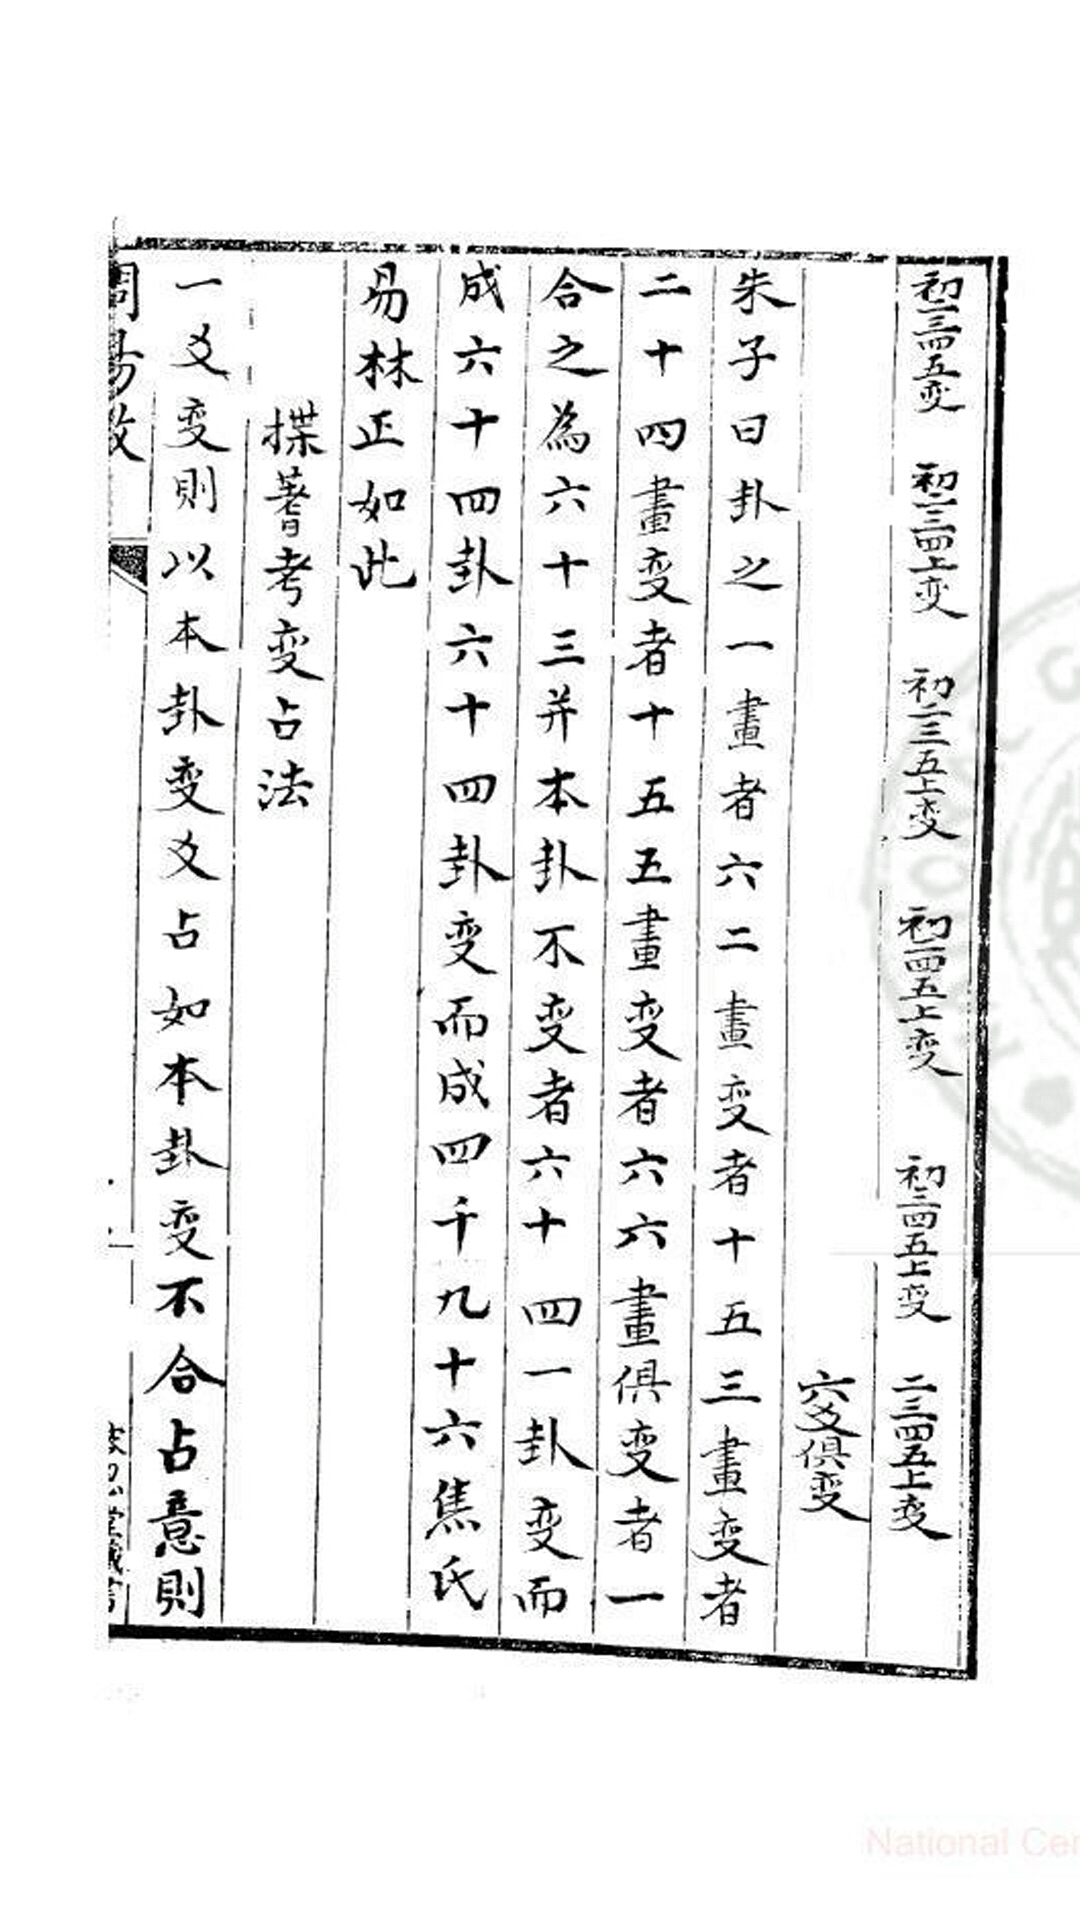 初二三四五变 初二三四上变 初二三五上变 初二四五上变 初三四五上变 二三四五上变
六爻俱变
朱子曰卦之一畫者六二畫变者十五三畫变者
二十四畫变者十五五畫变者六六畫俱变者一
合之為六十三并本卦不变者六十四一卦变而
成六十四卦六十四卦变而成四千九十六焦氏
易林正如此
揲蓍考变占法
一爻变則以本卦变爻占如本卦变不合占意則
周易
National Cen